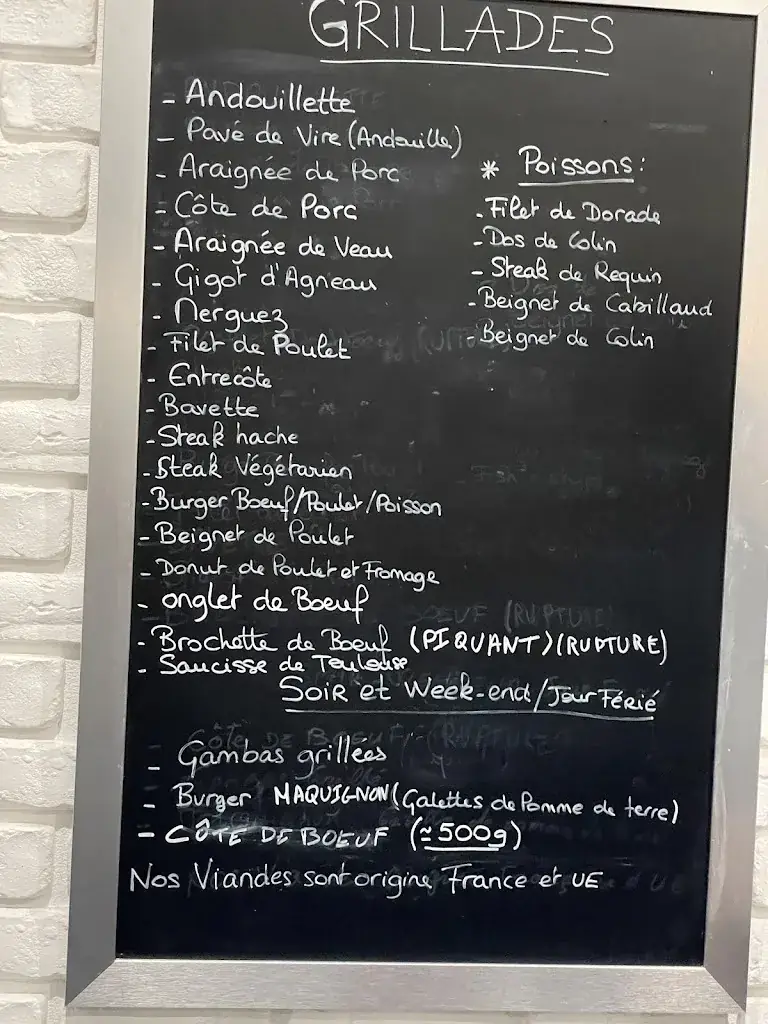 GRILLADES
- Andouillette
- Pavé de Vire (Andouille)
- Araignée de Porc
- Côte de Porc
- Araignée de Veau
- Gigot d'Agneau
- Merguez
- Filet de Poulet
- Entrecôte
- Bavette
- Steak hache
- Steak Végétarien
- Burger Boeuf/Poulet/Poisson
- Beignet de Poulet
- Donut de Poulet et Fromage
- onglet de Boeuf
- Brochette de Boeuf (PIQUANT) (RUPTURE)
- Saucisse de Toulouse
* Poissons:
- Filet de Dorade
- Dos de Colin
- Steak de Requin
- Beignet de Cabillaud
- Beignet de Colin
Soir et Week-end/Jour Férié
- Gambas grillees
- Burger MAQUIGNON (Galettes de Pomme de terre)
- CÔTE DE BOEUF (≈500g)
Nos Viandes sont origine France et UE